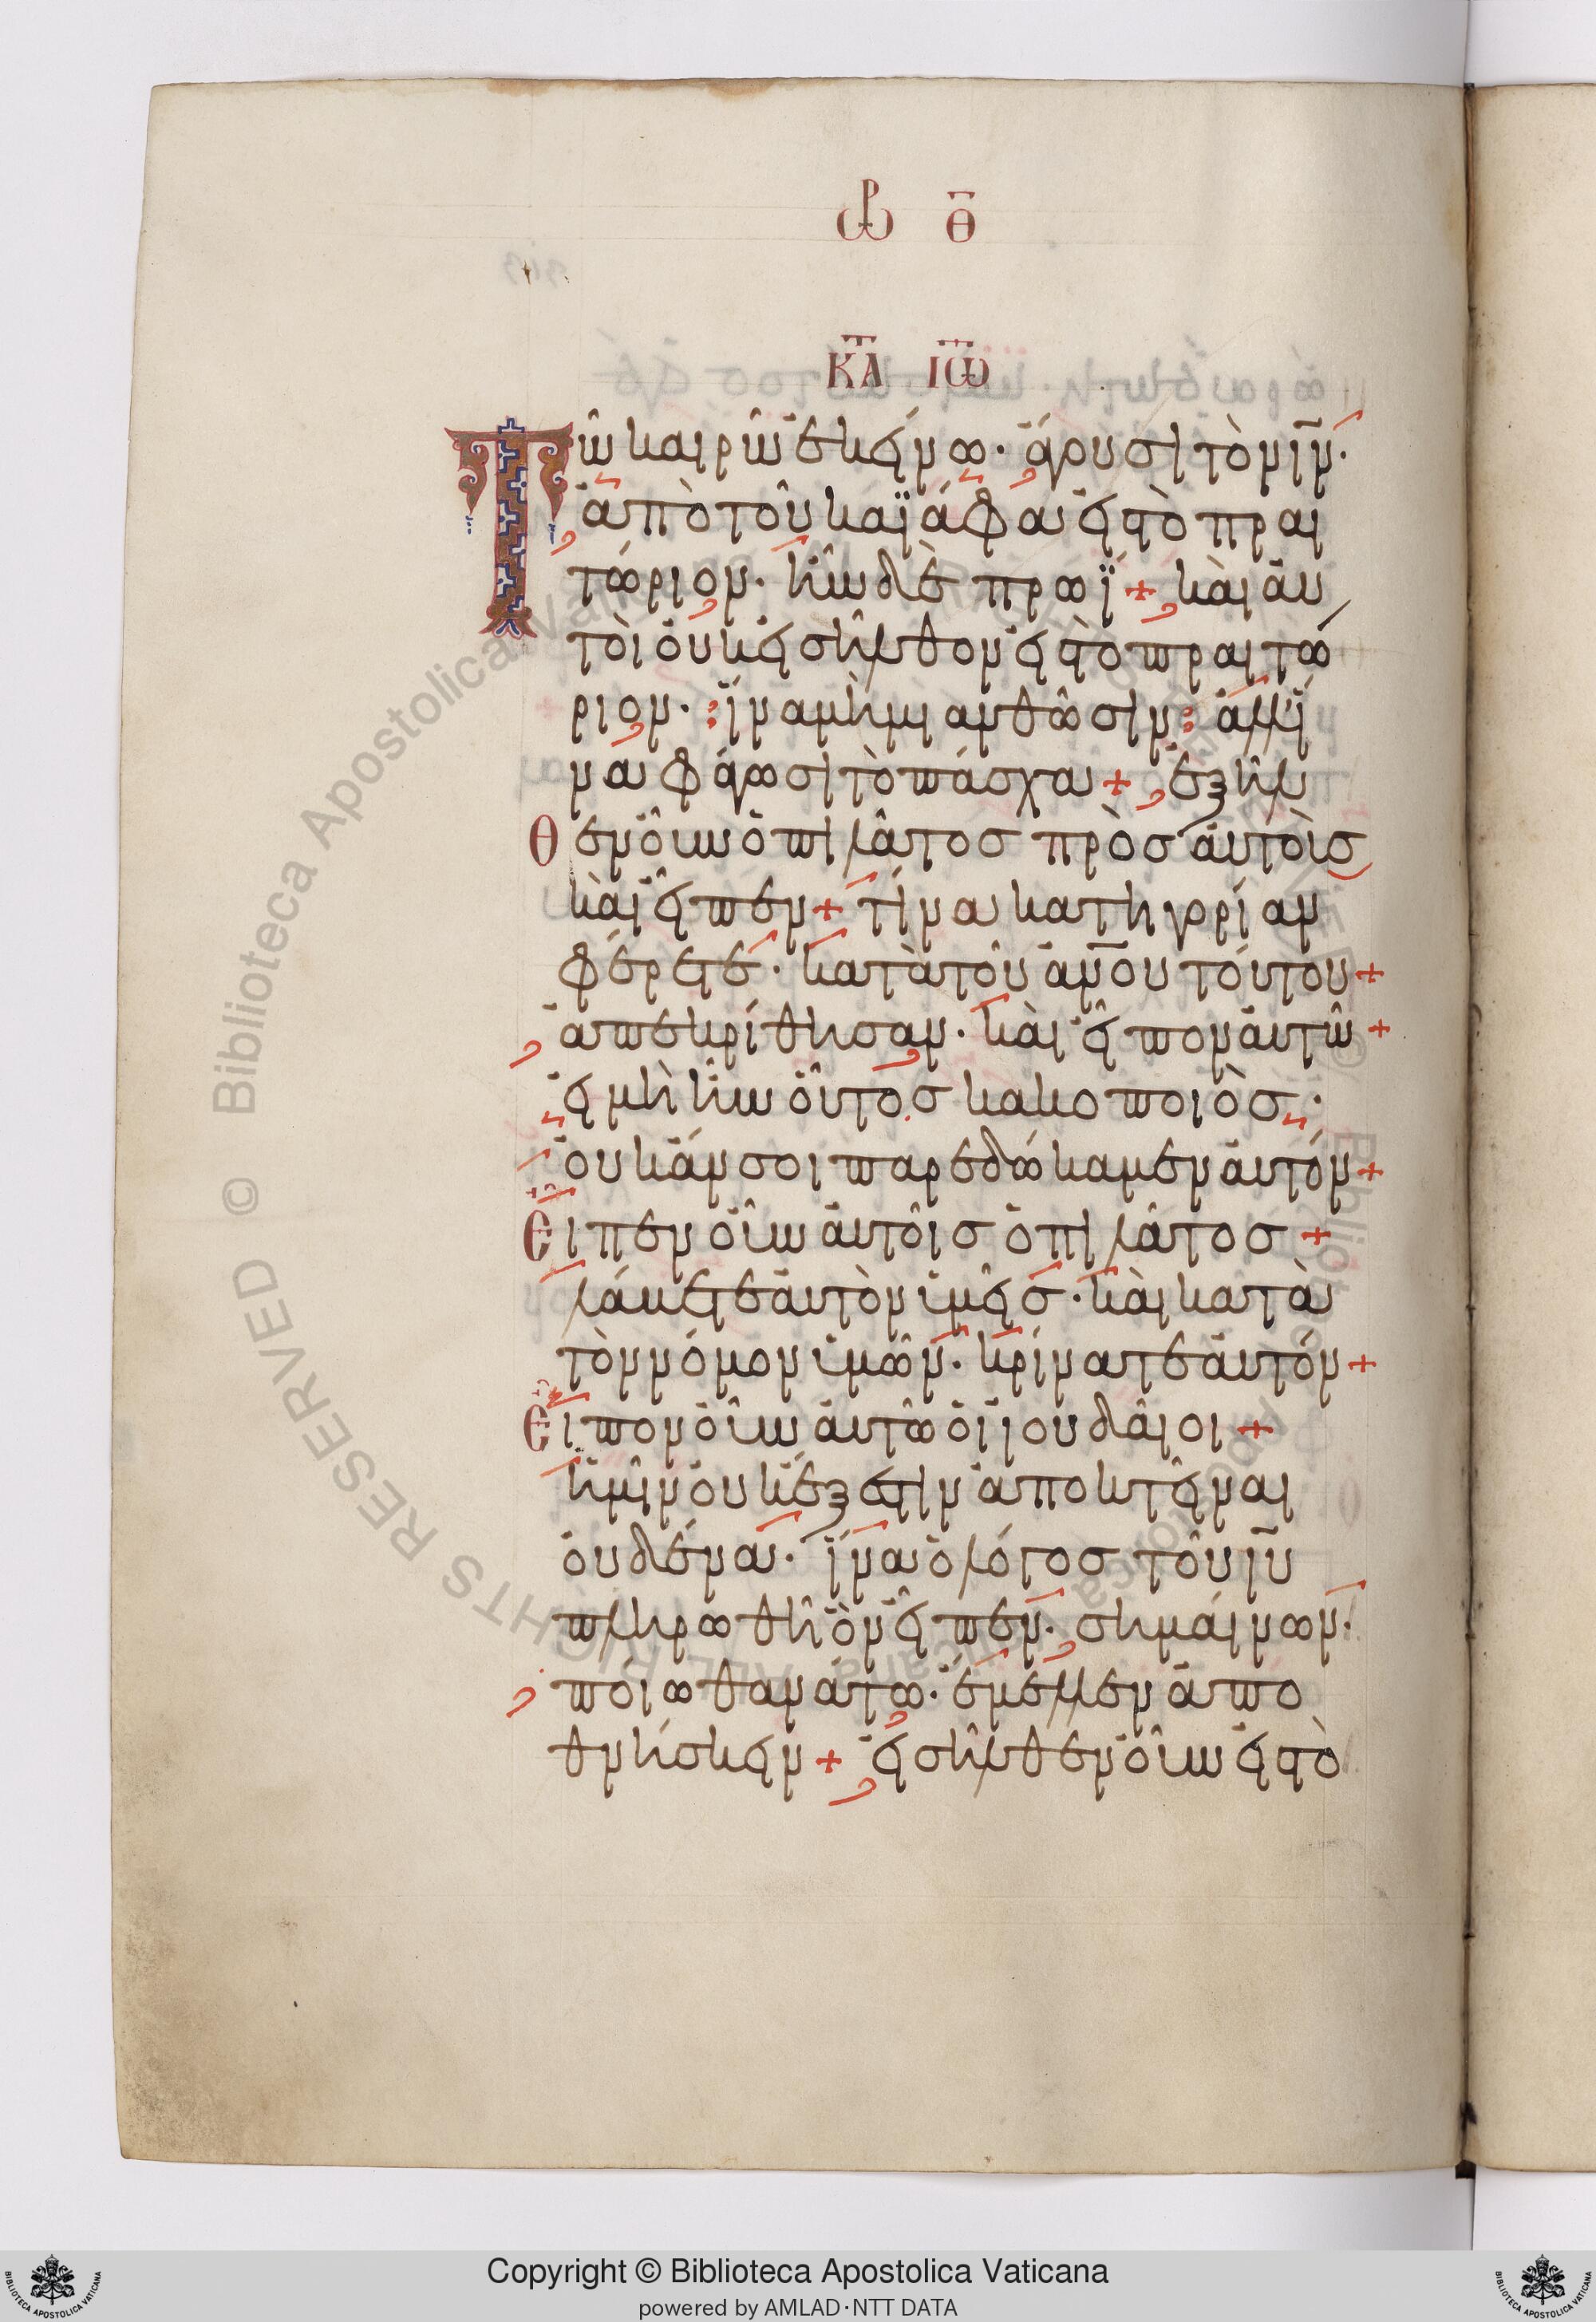 ὭΡ Θ̄
ΚΑΤ ΙΩ
Τῶ καιρῶ ἐκείνω· ἄγουσι τὸν ιν̄·
ἀπὸ τοῦ καϊάφα εἰς τὸ πραι
τώριον· ἦν δὲ πρωΐ + καὶ αὐ
τοὶ οὐκ εἰσῆλθον εἰς τὸ πραιτώ
ριον· ἵνα μὴ μιανθῶσιν: ἀλλ' ἵ
να φάγωσι τὸ πάσχα + ἐξῆλ
θεν οὖν ὁ πιλάτος πρὸς αὐτοὺς
καὶ εἶπεν + τίνα κατηγορίαν
φέρετε· κατὰ τοῦ ἀνο̄υ τούτου +
ἀπεκρίθησαν· καὶ εἶπον αὐτῶ +
εἰ μὴ ἦν οὗτος κακοποιὸς·
οὐκ ἄν σοι παρεδώκαμεν αὐτόν +
Εἶπεν οὖν αὐτοῖς ὁ πιλάτος +
λάβετε αὐτὸν ὑμεῖς· καὶ κατὰ
τὸν νόμον ὑμῶν· κρίνατε αὐτόν +
Εἶπον οὖν αὐτῶ οἱ ἰουδαῖοι +
ἡμῖν οὐκ ἔξεστιν ἀποκτεῖναι
οὐδένα· ἵνα ὁ λόγος τοῦ ιῡ
πληρωθῆ ὃν εἶπεν· σημαίνων·
ποίω θανάτω· ἔμελλεν ἀπο
θνήσκειν + εἰσῆλθεν οὖν εἰς τὸ
© Biblioteca Apostolica Vaticana ALL RIGHTS RESERVED
Copyright © Biblioteca Apostolica Vaticana
powered by AMLAD·NTT DATA